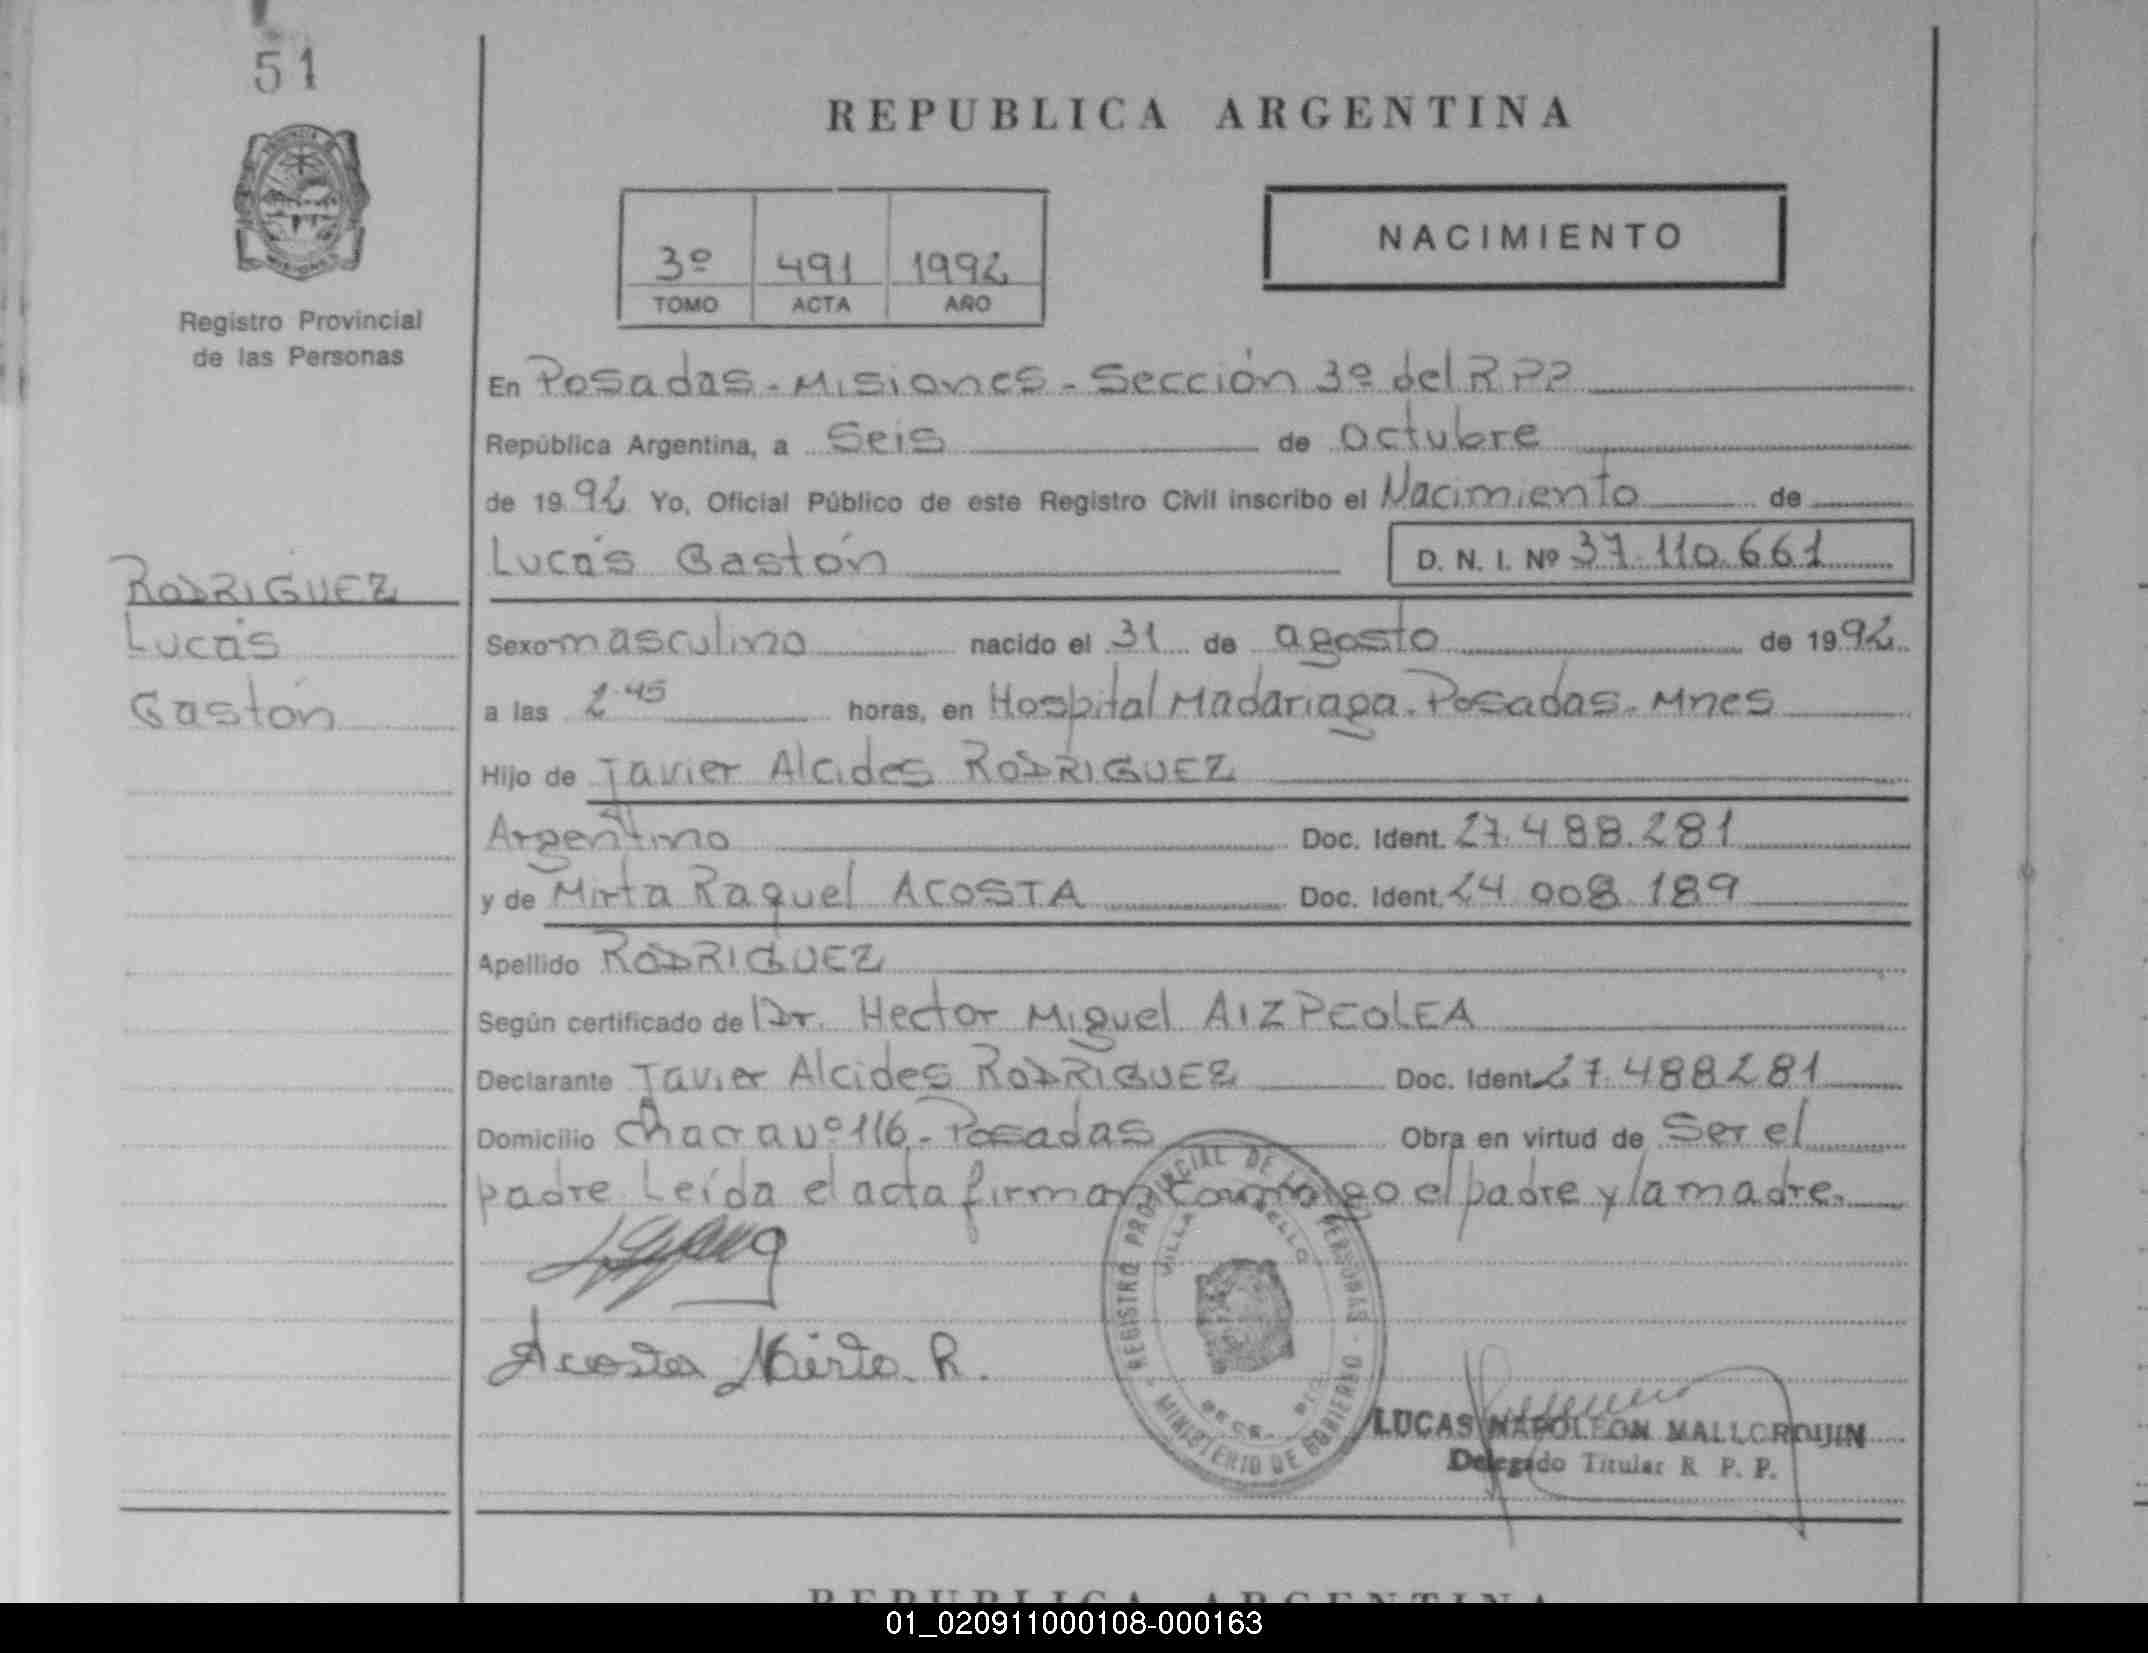 51
Registro Provincial
de las Personas
RODRIGUEZ
Lucas
Gastón
REPUBLICA ARGENTINA
3º 491 1992
TOMO ACTA AÑO
NACIMIENTO
En Posadas - Misiones - Sección 3º del RPP
República Argentina, a Seis de octubre
de 19 92 Yo, Oficial Público de este Registro Civil inscribo el Nacimiento de
Lucas Gastón D. N. I. Nº 37.110.661
Sexo masculino nacido el 31 de agosto de 19 92
a las 2.45 horas, en Hospital Madariaga. Posadas. Mnes
Hijo de Javier Alcides RODRIGUEZ
Argentino Doc. Ident. 27.488.281
y de Mirta Raquel ACOSTA Doc. Ident. 24 008 189
Apellido RODRIGUEZ
Según certificado de Dr. Hector Miguel AIZPEOLEA
Declarante Javier Alcides RODRIGUEZ Doc. Ident. 27.488281
Domicilio Chacra nº 116 - Posadas Obra en virtud de Ser el
padre Leída el acta firman conmigo el padre y la madre.
REGISTRO PROVINCIAL DE LAS PERSONAS - MINISTERIO DE GOBIERNO
VILLA
Acosta Mirta R.
LUCAS NAPOLEON MALLORQUIN
Delegado Titular R P. P.
REPUBLICA ARGENTINA
01_020911000108-000163